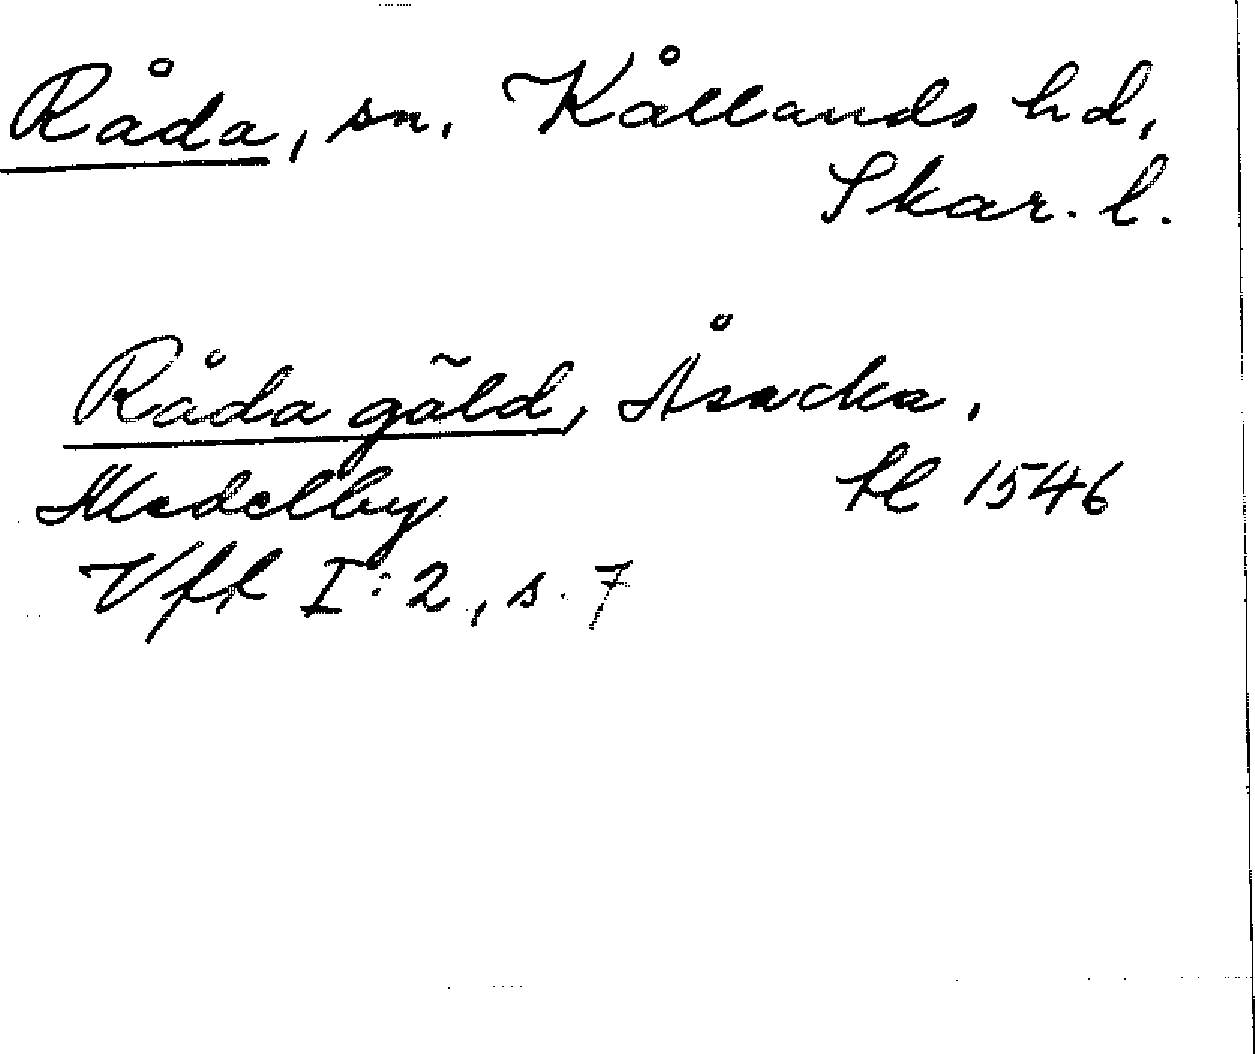 Råda, sn. Kållands hd,
Skar. l.
Råda gäld, Åsacka,
Medelby hl 1546
Vfk I:2, s. 7